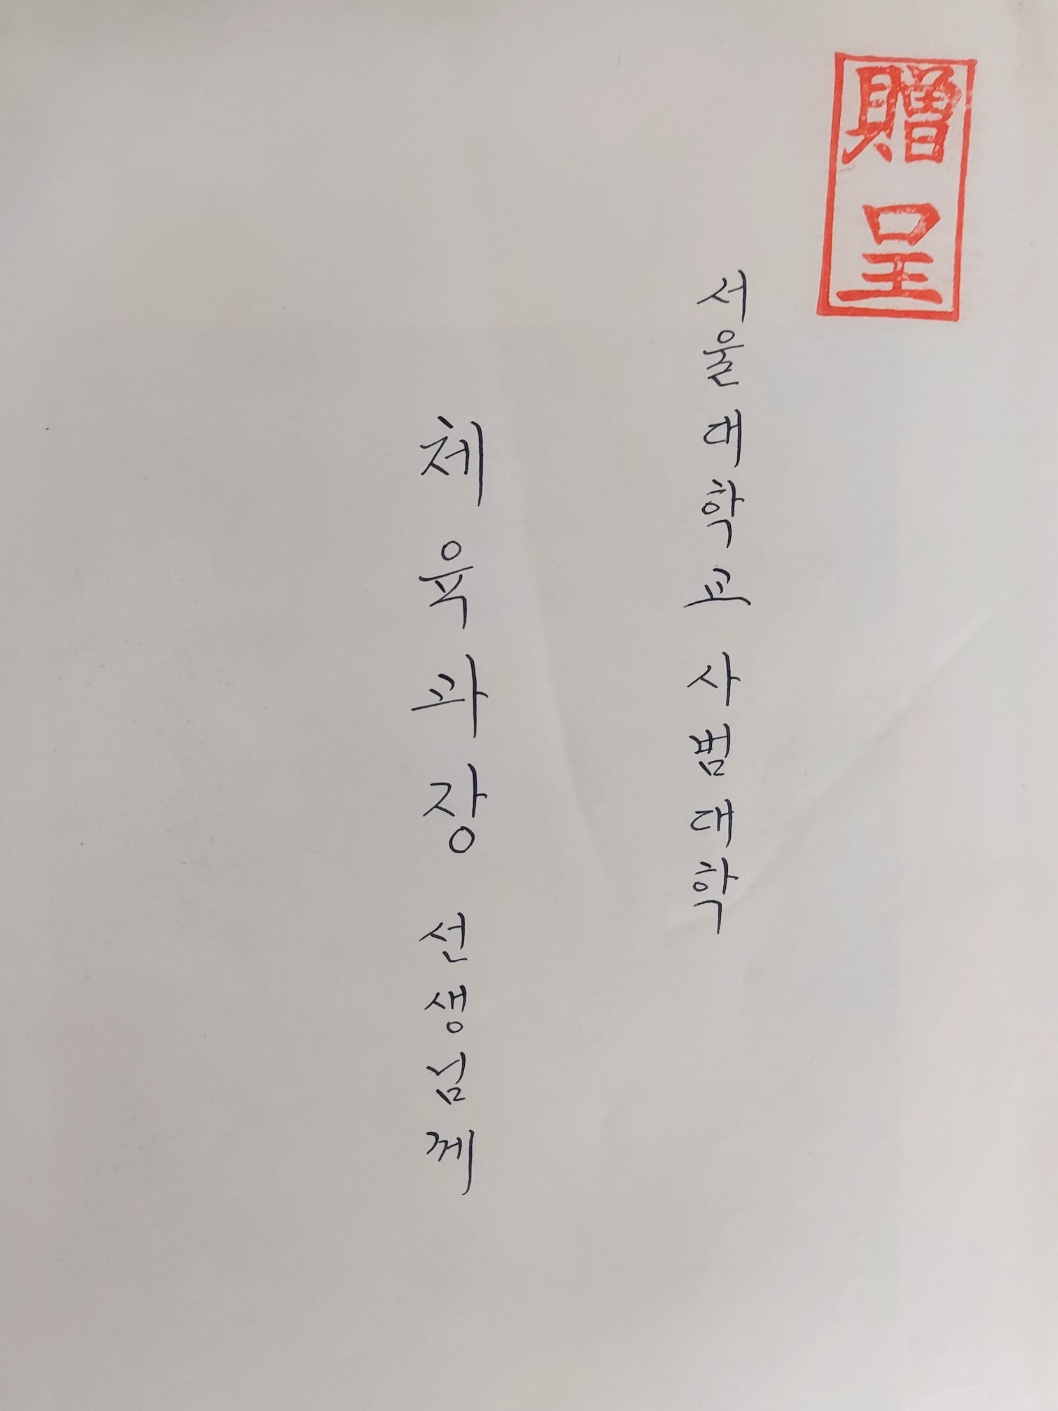 贈呈
서울대학교 사범대학
체육과장 선생님께